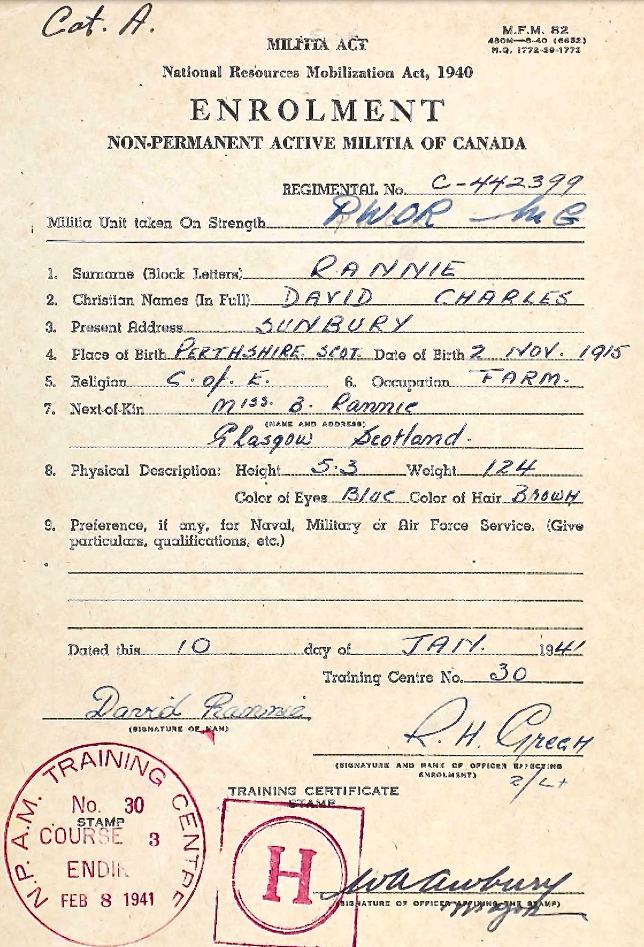 Cat. A.
M.F.M. 82
480M—8-40 (6652)
H.Q. 1772-39-1772
MILITIA ACT
National Resources Mobilization Act, 1940
ENROLMENT
NON-PERMANENT ACTIVE MILITIA OF CANADA
REGIMENTAL No. C-442399
Militia Unit taken On Strength PWOR MG
1. Surname (Block Letters) RANNIE
2. Christian Names (In Full) DAVID CHARLES
3. Present Address SUNBURY
4. Place of Birth PERTHSHIRE. SCOT. Date of Birth 2 NOV. 1915
5. Religion C. of. E. 6. Occupation FARM.
7. Next-of-Kin Miss. B. Rannie
(NAME AND ADDRESS)
Glasgow Scotland.
8. Physical Description: Height 5.3 Weight 124
Color of Eyes Blue Color of Hair BROWN
9. Preference, if any, for Naval, Military or Air Force Service. (Give
particulars, qualifications, etc.)
Dated this 10 day of JAN. 1941
Training Centre No. 30
David Rannie
(SIGNATURE OF MAN)
R. H. Green
(SIGNATURE AND RANK OF OFFICER EFFECTING
ENROLMENT)
2/Lt
TRAINING CERTIFICATE
STAMP
N.P.A.M. TRAINING CENTRE
No. 30
STAMP
COURSE 3
ENDIN
FEB 8 1941
H
(SIGNATURE OF OFFICER AFFIXING THE STAMP)
Major